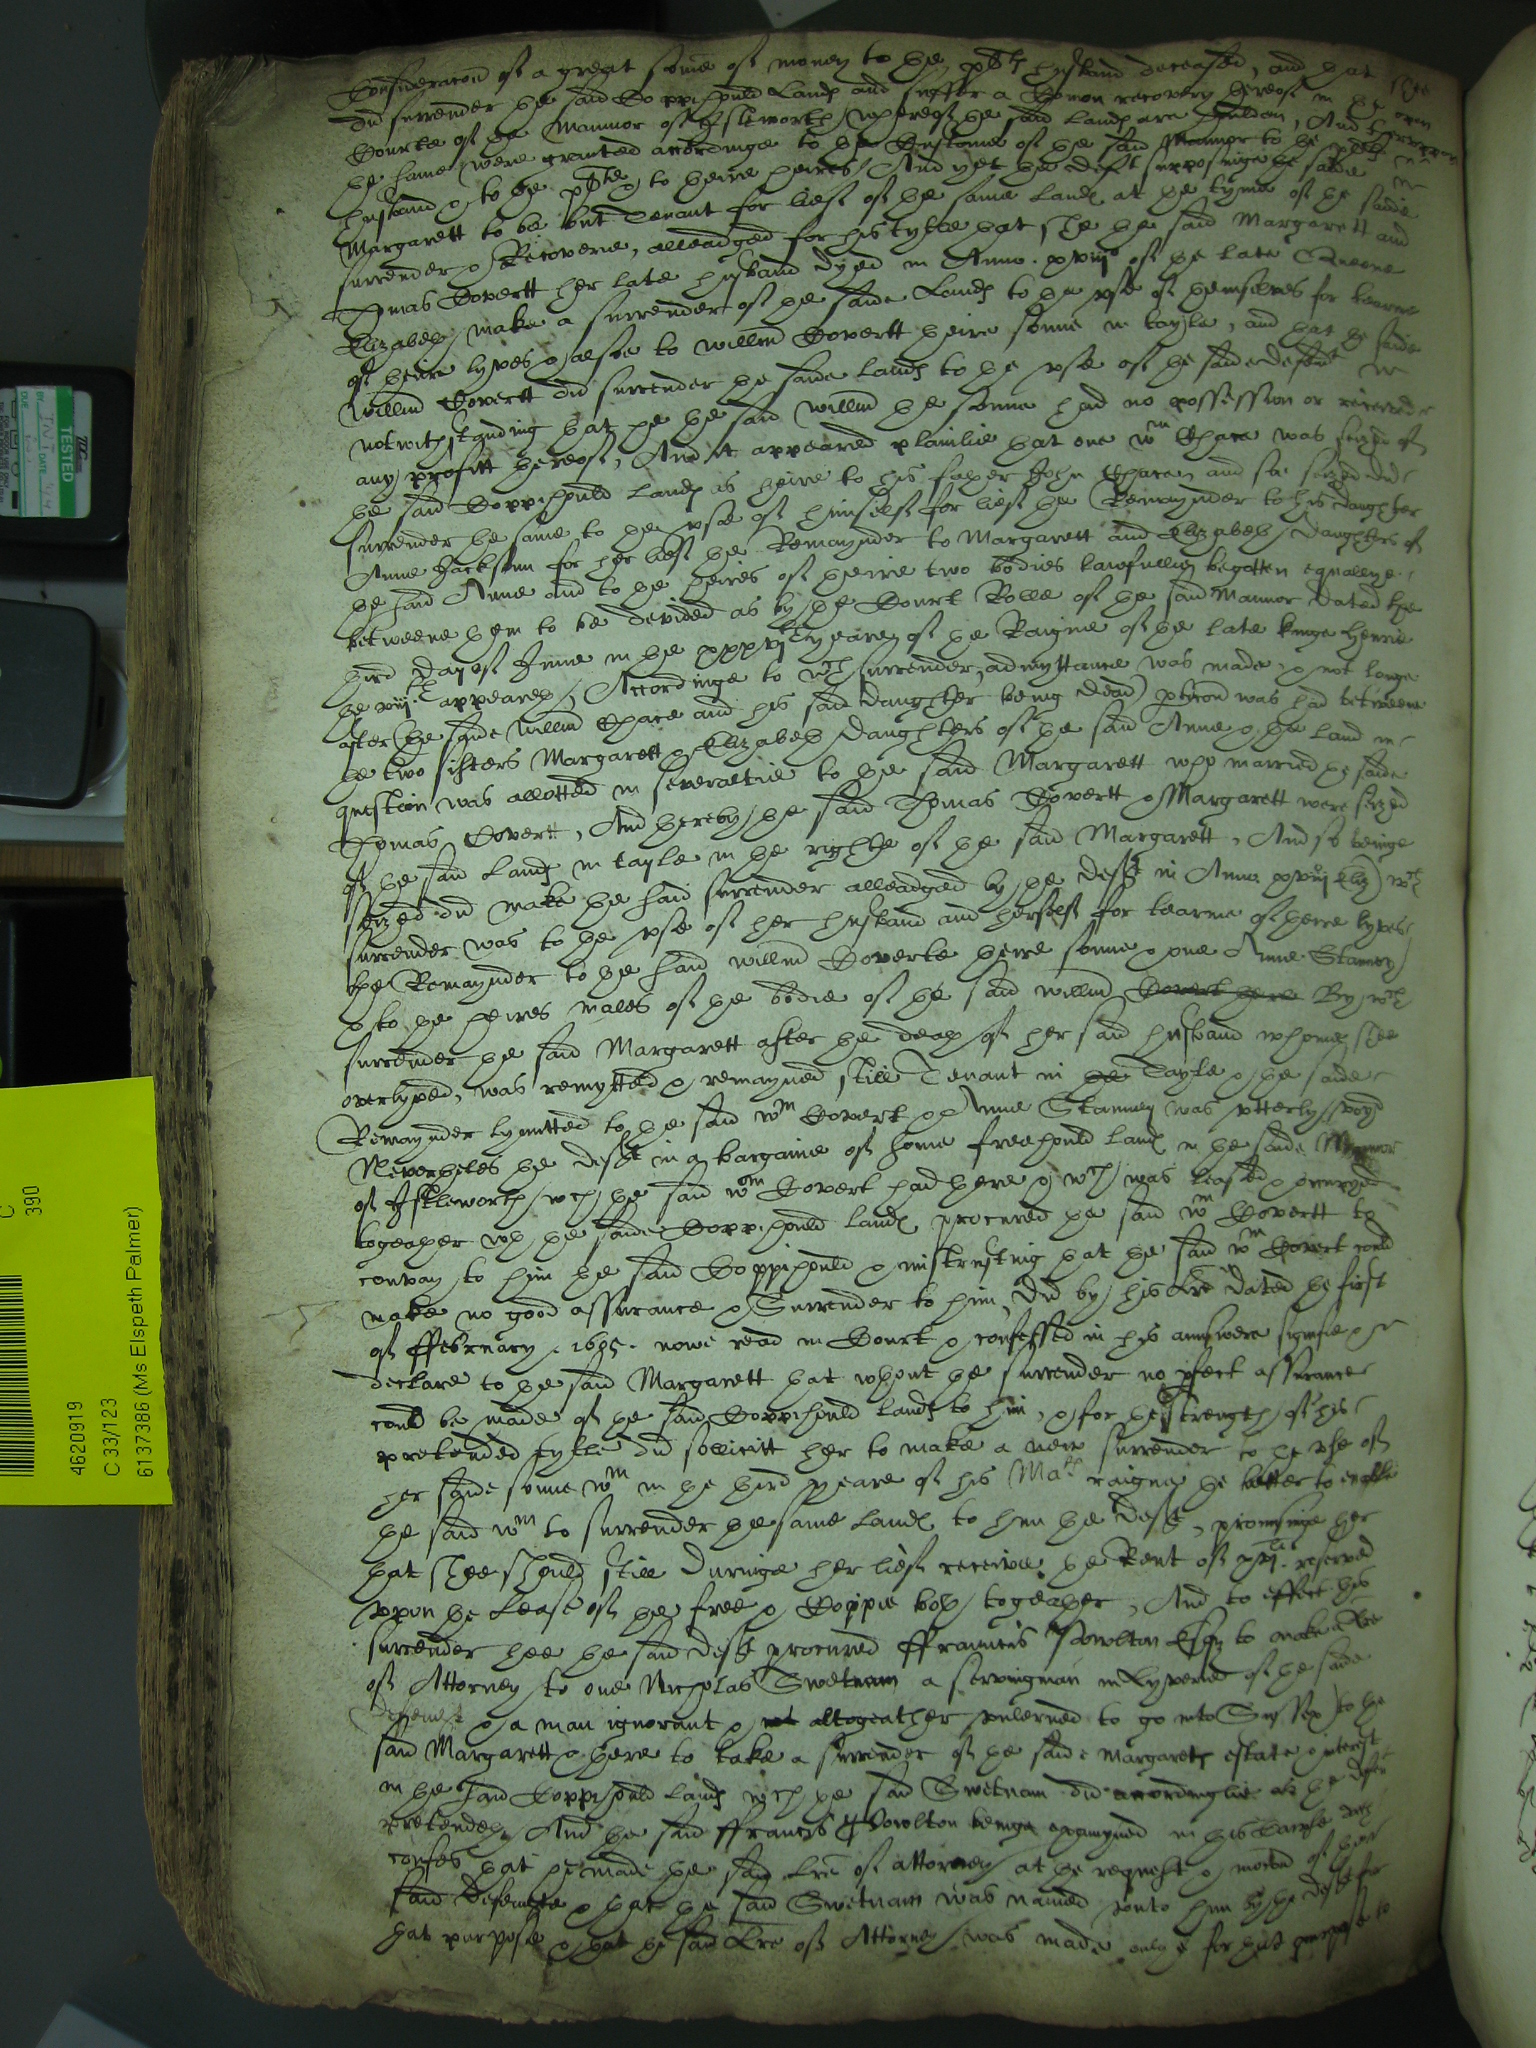 Consideracon of a great some of money to the pltes husband deceased, and that shee
did surrender the said Coppihould Lands and suffer a Comon recovery thereof in the open
Courte of the Mannor of Istleworth whereof the said lands are houlden, And therevppon
the same were graunted accordinge to the Custome of the said Mannor to the pltes
husband & to the plte & to theire heires, And yet the deft supposinge the saide
Margarett to be but Tenant for lief of the same lands at the tyme of the saide
surrender & Recoverie, alleadged for his tytle that shee the said Margarett and
Thomas Covertt her late husband dyed in Anno xviijo of the late Queene
Elizabeth make a surrender of the saide Lands to the vse of themselves for tearme
of theire lyves & alsoe to Willm Covertt theire sonne in tayle, and that the saide
Willm Covertt did surrender the saide lands to the vse of the saide defent
notwithstanding that he the said Willm the sonne had no possession or received
any profitt thereof, And it appeared plainlie that one Wm Chace was seized of
the said Coppihould lands as heire to his father John Chace and so seized did
surrender the same to the vse of himself for lief the Remaynder to his daughter
Anne Jackson for her lief the Remaynder to Margarett and Elizabeth daughters of
the said Anne and to the heires of theire two bodies lawfully begotten equallye
betweene them to be devided as by the Court Rolle of the said Mannor dated the
third day of June in the yeare of the Raigne of the late kinge Henrie
the viijth appeareth, Accordinge to wch surrender, admyttance was made, & not longe
after (the saide Willm Chace and his said daughter being dead) pticon was had betweene
the two sisters Margarett & Elizabeth daughters of the said Anne & the land in
question was allotted in severaltie to the said Margarett who married the saide
Thomas Covertt, And thereby the said Thomas Covertt & Margarett were seized
of the said lands in tayle in the righte of the said Margarett, And so beinge
seized did make the said surrender alleadged by the deft in Anno xviijo Eliz) wch
surrender was to the vse of her husband and herself for tearme of theire lyves
the Remaynder to the said Willm Coverte theire sonne & one Anne Stanney
& to the heires males of the bodie of the said Willm Covert theire By wch
surrender the said Margarett after the death of her said husband whome shee
overlyved, was remytted & remayned still Tenant in the Tayle & the saide
Remaynder lymitted to the said Wm Covert & Anne Stanney was vtterly voyd
Nevertheles the deft in a bargaine of some freehould lands in the saide Mannor
of Istleworth wch the said Wm Covert had there & wch was leased & occupyed
togeather wth the saide Coppihould lands procured the said Wm Covertt to
convay to him the said Coppihould & mistrusting that the said Wm Covert could
make no good assurance & Surrender to him, did by his Lre dated the first
of ffebruary 1605. nowe read in Court & confessed in his answere signifie &
declare to the said Margarett that wthout the surrender no pfect assurance
could be made of the said Coppihould lands to him, & for the strength of his
pretended tytle did sollicitt her to make a new surrender to the vse of
her saide sonne Wm in the third yeare of his Mats raigne the better to enable
the said Wm to surrender the same lands to him the deft, promisinge her
that shee should still duringe her lief receive the Rent of reserved
vpon the Lease of the free & Coppie both togeather, And to effect this
surrender hee the said deft procured ffrauncis Esqr to make a Lre
of Attorney to one Nicholas Swetnam a servingman in Lyveried of the saide
Defendt & a man ignorant & not altogeather vnlerned to go into Sussex to the
said Margarett & there to take a surrender of the saide Margaretts estate & interest
in the said Coppihould lands wch the said Swetnam did accordinglie as the deft
pretendeth, And the said ffrancis being examyned in this Cawse doth
confes that he made the said Lre of attorney at the request & mocon of the
said Defendte & that the said Swetnam was named vnto him by the deft for
that purpose & that the said Lre of Attorney was made onlye for that purpose to
TESTED
BY INT DATE
DUE
C 390
4620919
C 33/123
6137386 (Ms Elspeth Palmer)